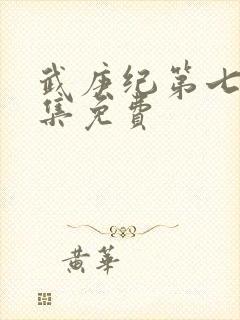 武庚纪第七
集免费
黄华